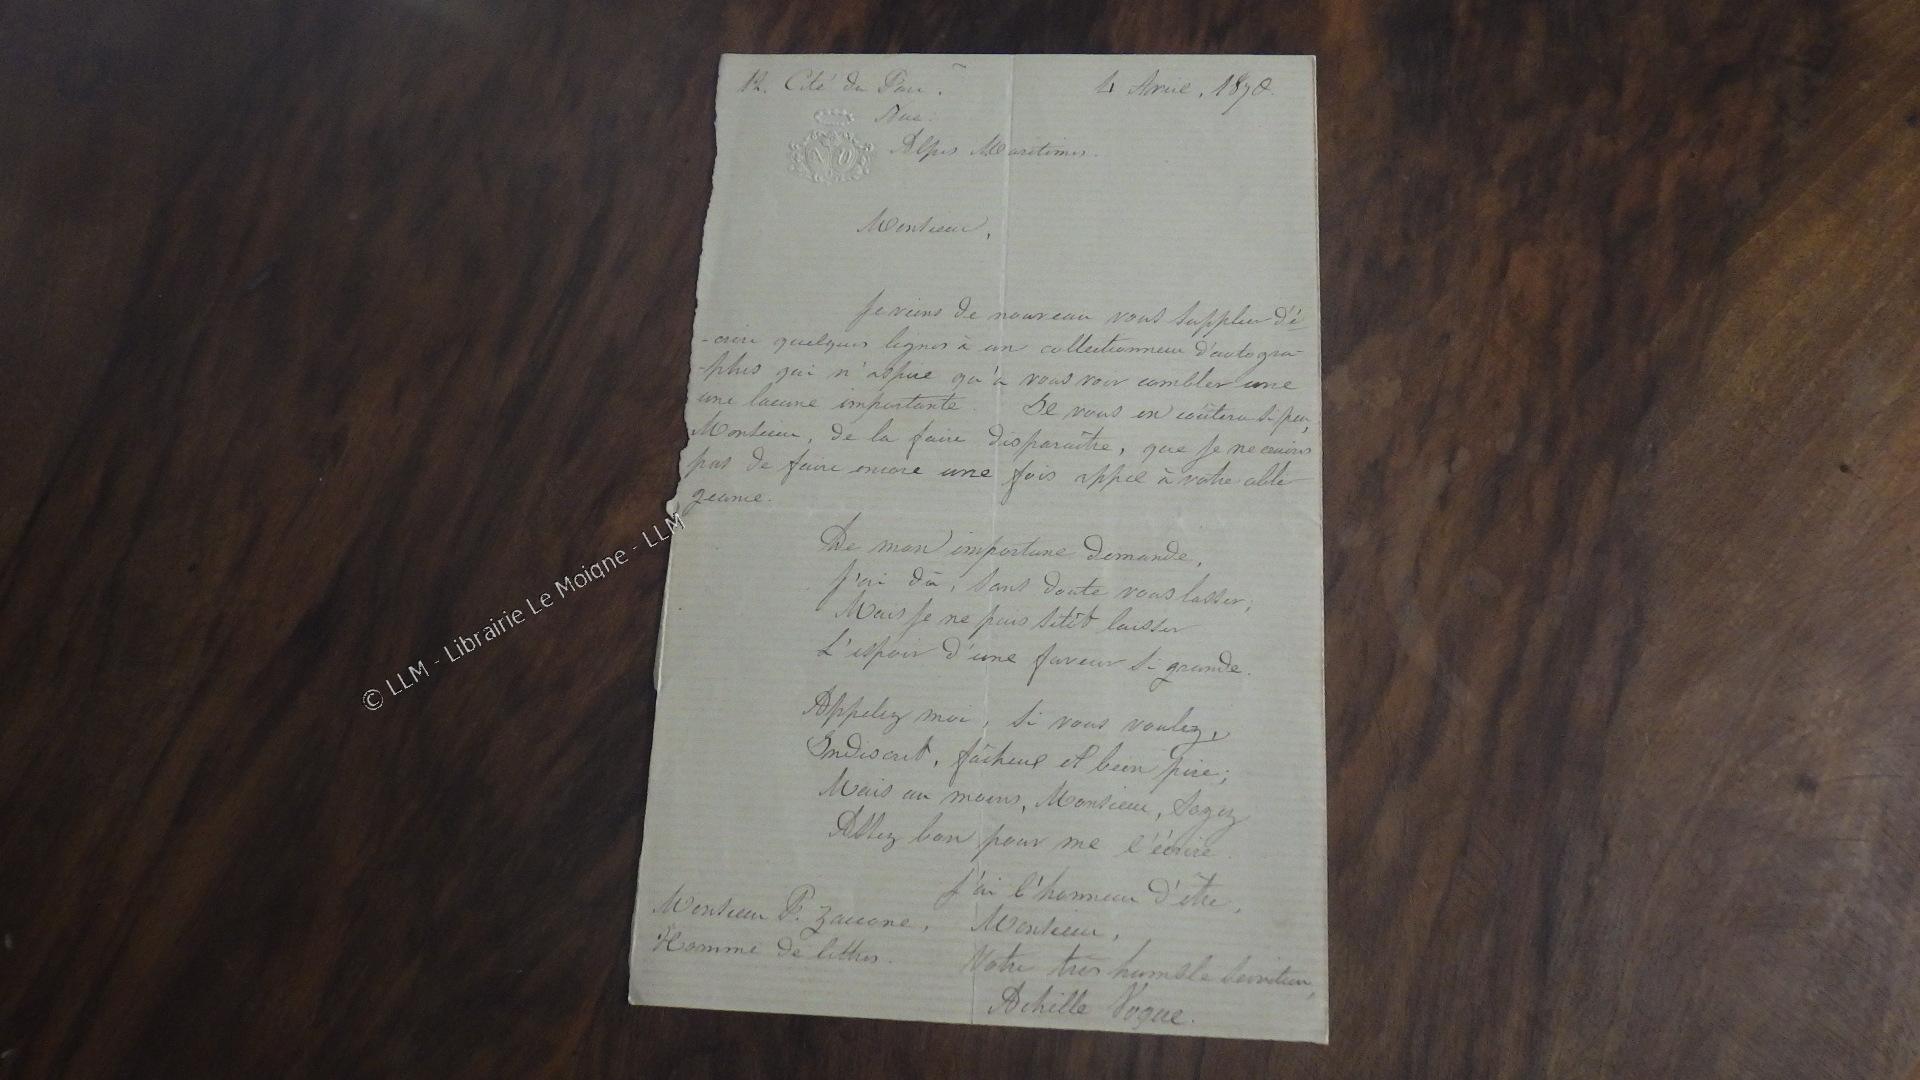 12. Cité du Parc.
4 Avril, 1878.
Nice.
Alpes Maritimes.
Monsieur,
Je viens de nouveau vous supplier d'é-
-crire quelques lignes à un collectionneur d'autogra-
-phes qui n'aspire qu'à vous voir combler une
une lacune importante. Il vous en coûtera si peu,
Monsieur, de la faire disparaître, que je ne crains
pas de faire encore une fois appel à votre obli-
geance.
De mon importune demande,
J'ai dû, sans doute vous lasser;
Mais je ne puis sitôt laisser
L'espoir d'une faveur si grande.
Appelez moi, si vous voulez,
Indiscret, fâcheux et bien pire;
Mais au moins, Monsieur, soyez
Assez bon pour me l'écrire.
J'ai l'honneur d'être,
Monsieur P. Zaccone,
Homme de lettres.
Monsieur,
Votre très humble serviteur,
Achille Vogue.
© LLM - Librairie Le Moigne - LLM